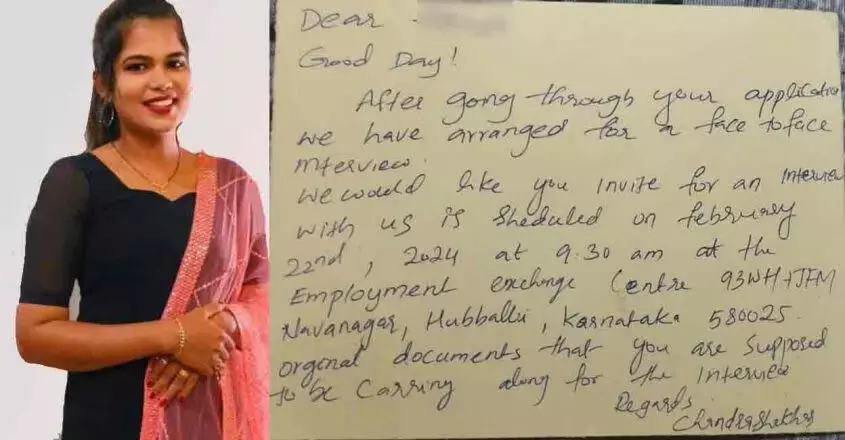 Dear
Good Day!
After gong through your application
we have arranged for a face toface
interview.
we would like you invite for an interview
with us is sheduled on february
22nd, 2024 at 9.30 am at the
Employment exchange Centre 93WH+JFM
Navanagar, Hubballi, Karnataka 580025.
orginal documents that you are supposed
to be carring along for the interview
Regards
Chandrashekhar